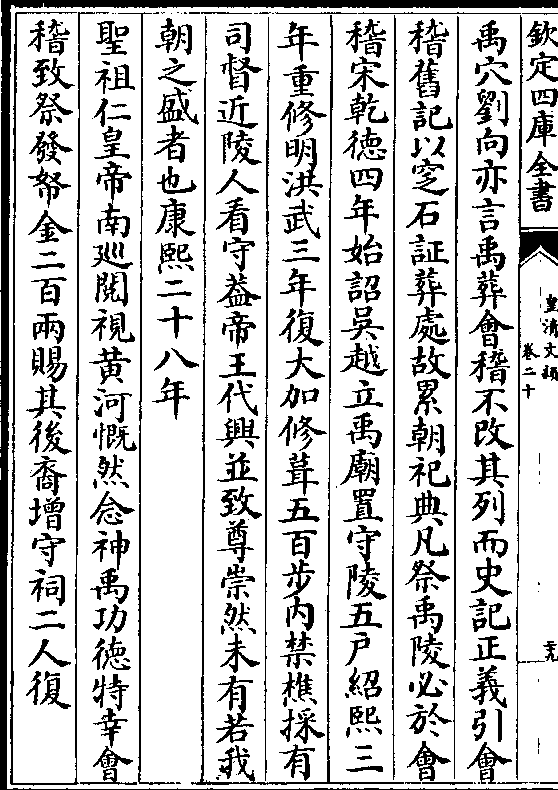 欽定四庫全書
皇清文穎
卷二十
禹穴劉向亦言禹葬會稽不改其列而史記正義引會
稽舊記以窆石証葬處故累朝祀典凡祭禹陵必於會
稽宋乾德四年始詔吳越立禹廟置守陵五戶紹熙三
年重修明洪武三年復大加修葺五百步内禁樵採有
司督近陵人看守葢帝王代興並致尊崇然未有若我
朝之盛者也康熙二十八年
聖祖仁皇帝南廵閱視黄河慨然念神禹功德特幸會
稽致祭發帑金二百兩賜其後裔增守祠二人復